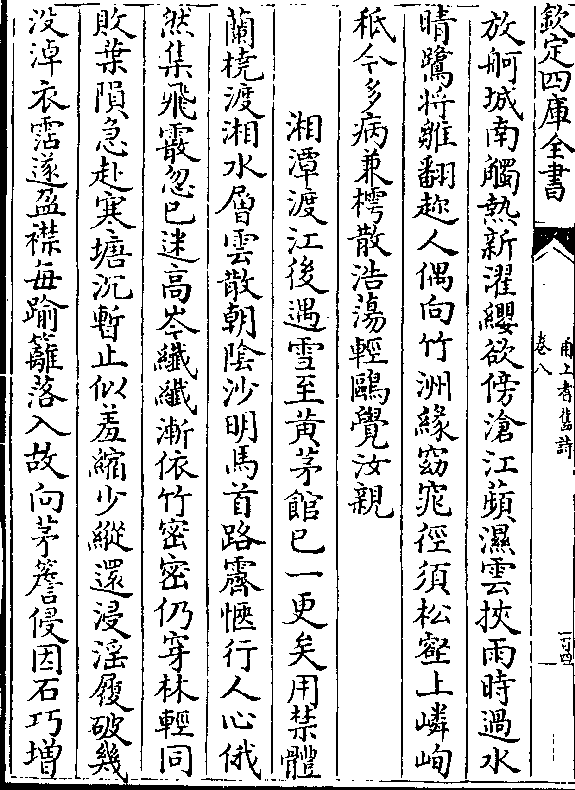 欽定四庫全書
甬上耆舊詩
卷八
放舸城南觸熱新濯纓欲傍滄江蘋濕雲挾雨時過水
晴鷺將雛翻趂人偶向竹洲緣窈窕徑須松壑上嶙峋
秪今多病兼樗散浩蕩輕鷗覺汝親
湘潭渡江後遇雪至黃茅館已一更矣用禁體
蘭橈渡湘水層雲散朝陰沙明馬首路霽愜行人心俄
然集飛霰忽已迷高岑纖纖漸依竹密密仍穿林輕同
敗葉隕急赴寒塘沉暫止似羞縮少縱還浸淫履破幾
没淖衣霑遂盈襟每踰籬落入故向茅簷侵因石巧增